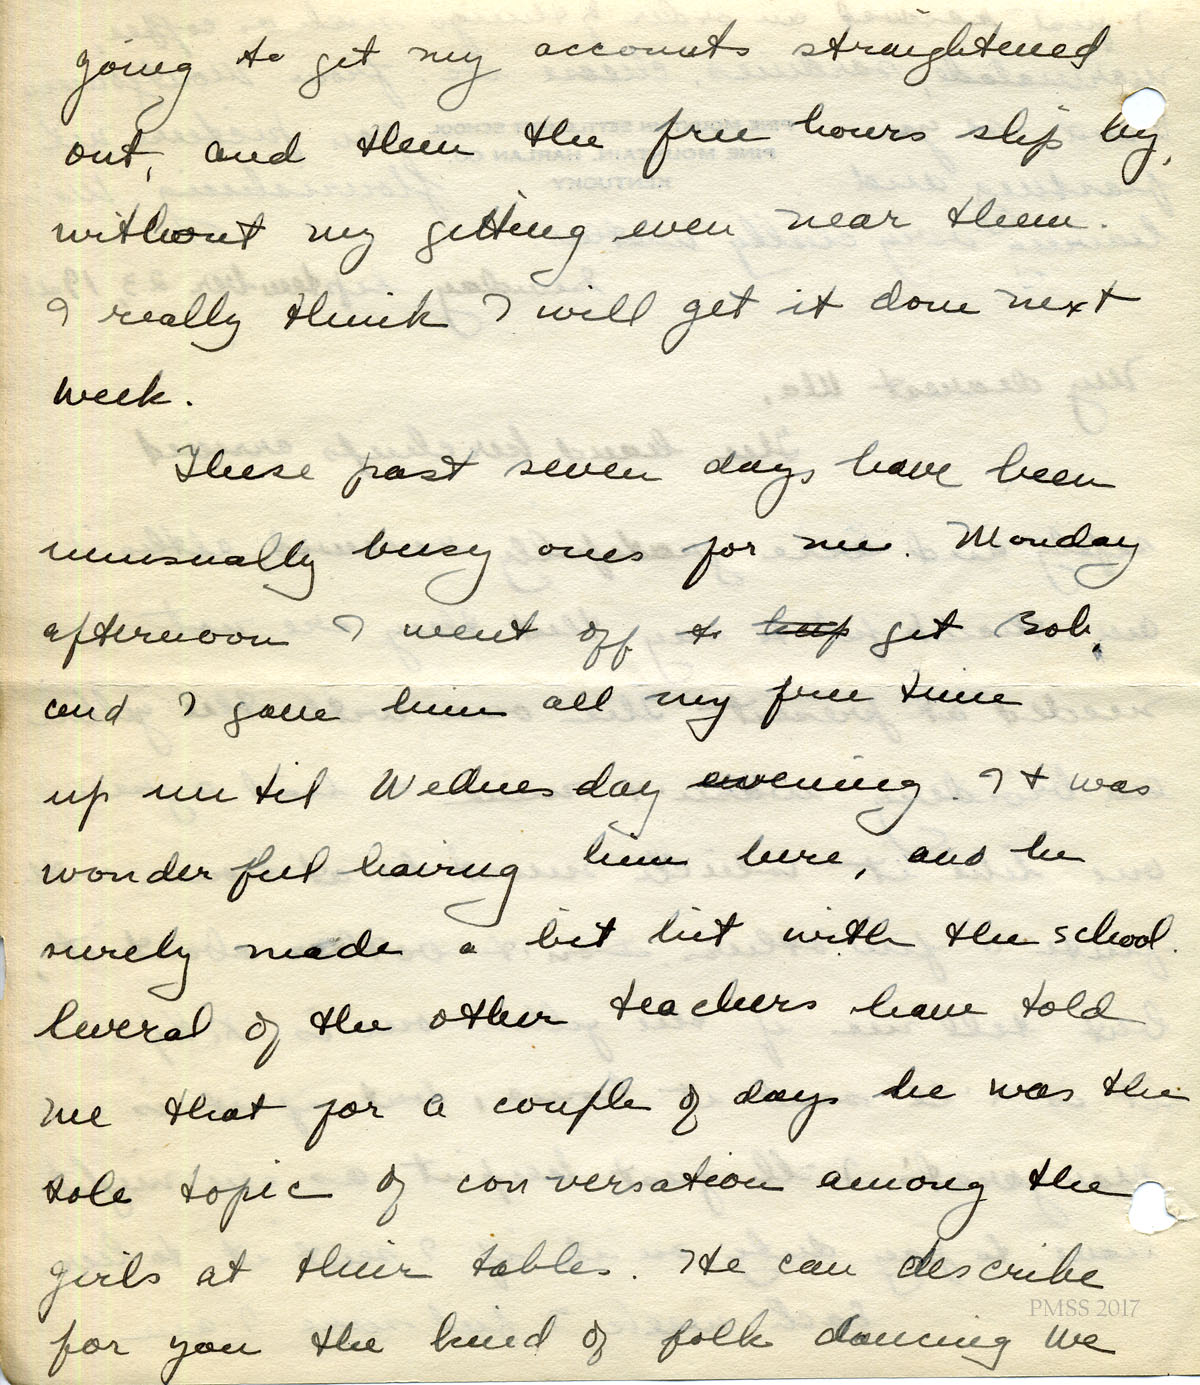 going to get my accounts straightened
out, and then the free hours slip by,
without my getting even near them.
I really think I will get it done next
week.
These past seven days have been
unusually busy ones for me. Monday
afternoon I went off to keep get Bob,
and I gave him all my free time
up until Wednesday evening. It was
wonderful having him here, and he
surely made a bit hit with the school.
Several of the other teachers have told
me that for a couple of days he was the
sole topic of conversation among the
girls at their tables. He can describe
PMSS 2017
for you the kind of folk dancing we